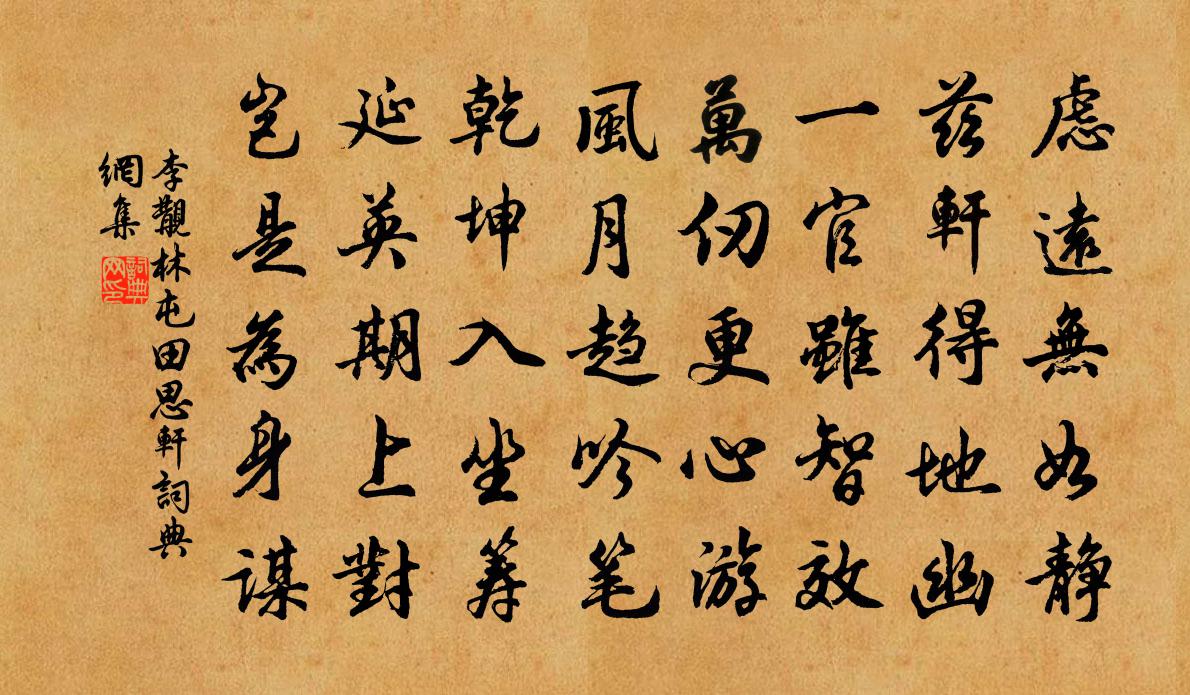 慮遠無如静
茲軒得地幽
一官雖智效
萬仞更心游
風月趋吟笔
乾坤入坐筹
延英期上對
豈是為身謀
李覯林屯田思軒詞典
網集
詞典
网印